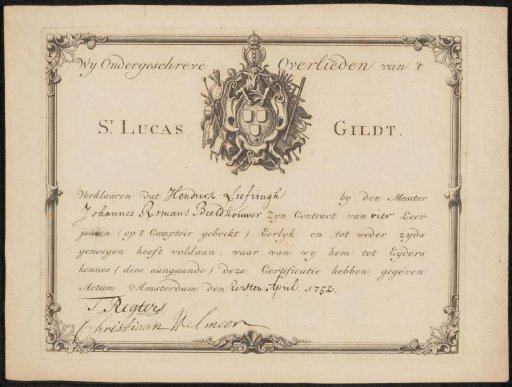 Wy Ondergeschreve Overlieden van 't
St. LUCAS GILDT.
Verklaaren dat Hendrick Liefringh by den Meester
Johannes Romans Beeldhouwer Zyn Contract van vier Leer-
jaaren (op't Comptoir geboekt) Eerlyk en tot weder zyds
genoegen heeft voldaan; waar van wy hem tot Eyders
kennes (dies aangaande) deze Certificatie hebben gegeven
Actum Amsterdam den Eersten April 1752.
T Regters
Christiaan Welmeer